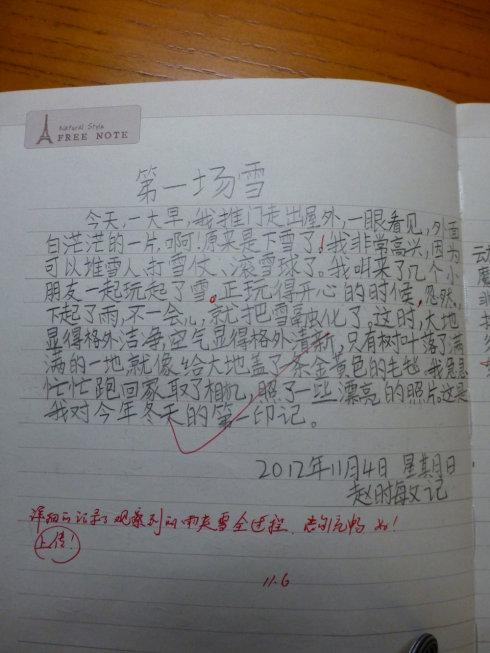 Natural Style
FREE NOTE
第一场雪
今天,一大早,我推门走出屋外,一眼看见,外面
白茫茫的一片。啊!原来是下雪了!我非常高兴,因为
可以堆雪人、打雪仗、滚雪球了。我叫来了几个小
朋友一起玩起了雪。正玩得开心的时候,忽然,
下起了雨,不一会儿,就把雪融化了。这时,大地
显得格外洁净,空气显得格外清新,只有树叶落了满
满的一地就像给大地盖了一条金黄色的毛毯。我急急
忙忙跑回家取了相机,照了一些漂亮的照片。这是
我对今年冬天的第一印记。
2012年11月4日 星期日
赵时 记
详细的记录了观察到的雨夹雪全过程,语句流畅
上传!
11.6